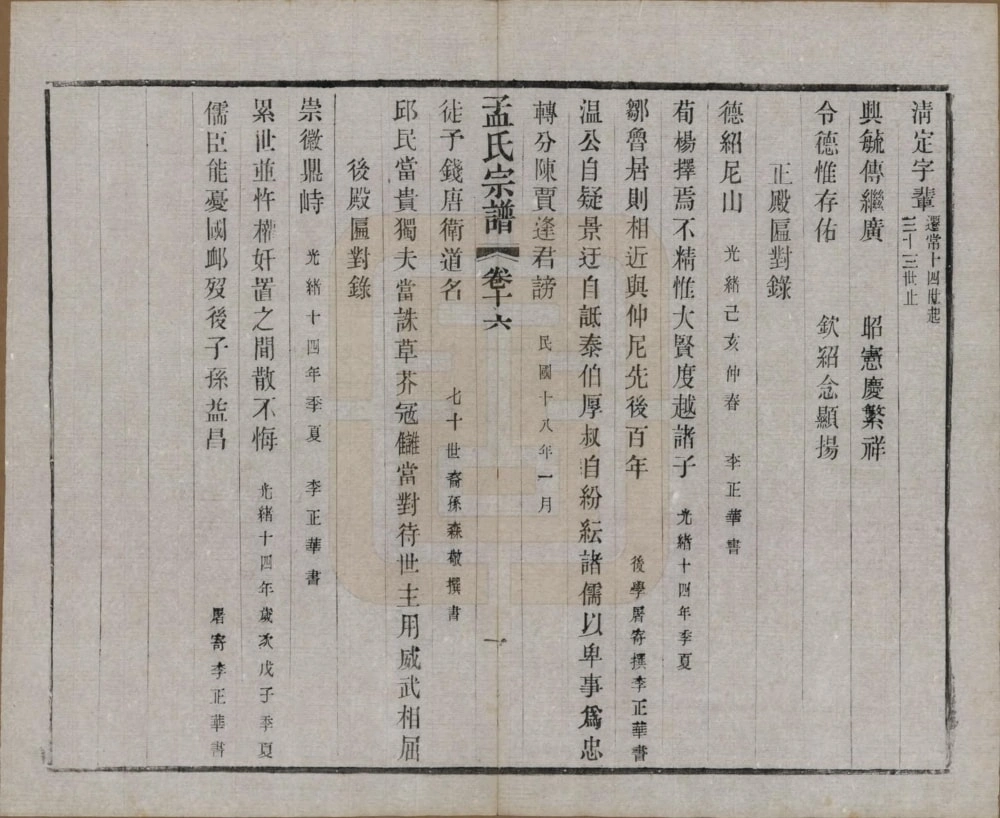 清定字輩 遷常十四世起
三十三世止
興毓傳繼廣 昭憲慶繁祥
令德惟存佑 欽紹念顯揚
正殿匾對錄
德紹尼山 光緒己亥仲春 李正華書
荀楊擇焉不精惟大賢度越諸子 光緒十四年季夏
鄒魯居則相近與仲尼先後百年 後學屠寄撰李正華書
温公自疑景迂自詆泰伯厚叔自紛紜諸儒以卑事爲忠
轉分陳賈逢君謗 民國十八年一月
孟氏宗譜 卷十六 一
徒予錢唐衛道名 七十世裔孫森敬撰書
邱民當貴獨夫當誅草芥冦讎當對待世主用威武相屈
後殿匾對錄
崇徽鼎峙 光緒十四年季夏 李正華書
累世並忤權奸置之閒散不悔 光緒十四年歲次戊子季夏
儒臣能憂國邮歿後子孫益昌 屠寄李正華書